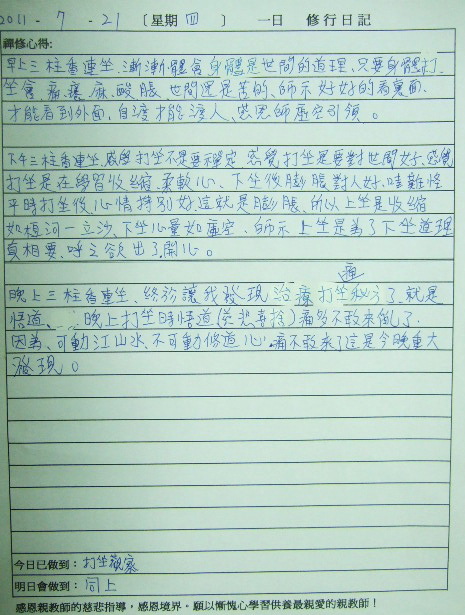 2011 - 7 - 21 〔星期 四 〕 一日 修行日記
禪修心得:
早上三柱香連坐、漸漸體會身體是世間的道理、只要身體打
坐會痛、癢、麻、酸脹 世間還是苦的、師示 好好的看裏面、
才能看到外面、自渡才能渡人、感恩師 虛空引領。
下午三柱香連坐、感覺打坐不是要禪定 感覺打坐是要對世間好、感覺
打坐是在學習收縮、柔軟心、下坐後膨脹對人好、哇難怪
平時打坐後、心情特別好、這就是膨脹、所以上坐是收縮
如恒河一立沙、下坐心量如虛空、師示 上坐是為了下坐道理
真相要、呼之欲出了、開心。
晚上三柱香連坐、終於讓我發現治療打坐痛秘方了、就是
悟道、晚上打坐時悟道(慈悲喜捨)痛多不敢來亂了、
因為、可動江山水、不可動修道心、痛不敢來了這是今晚重大
發現。
今日已做到: 打坐觀察
明日會做到: 同上
感恩親教師的慈悲指導，感恩境界。願以慚愧心學習供養最親愛的親教師！